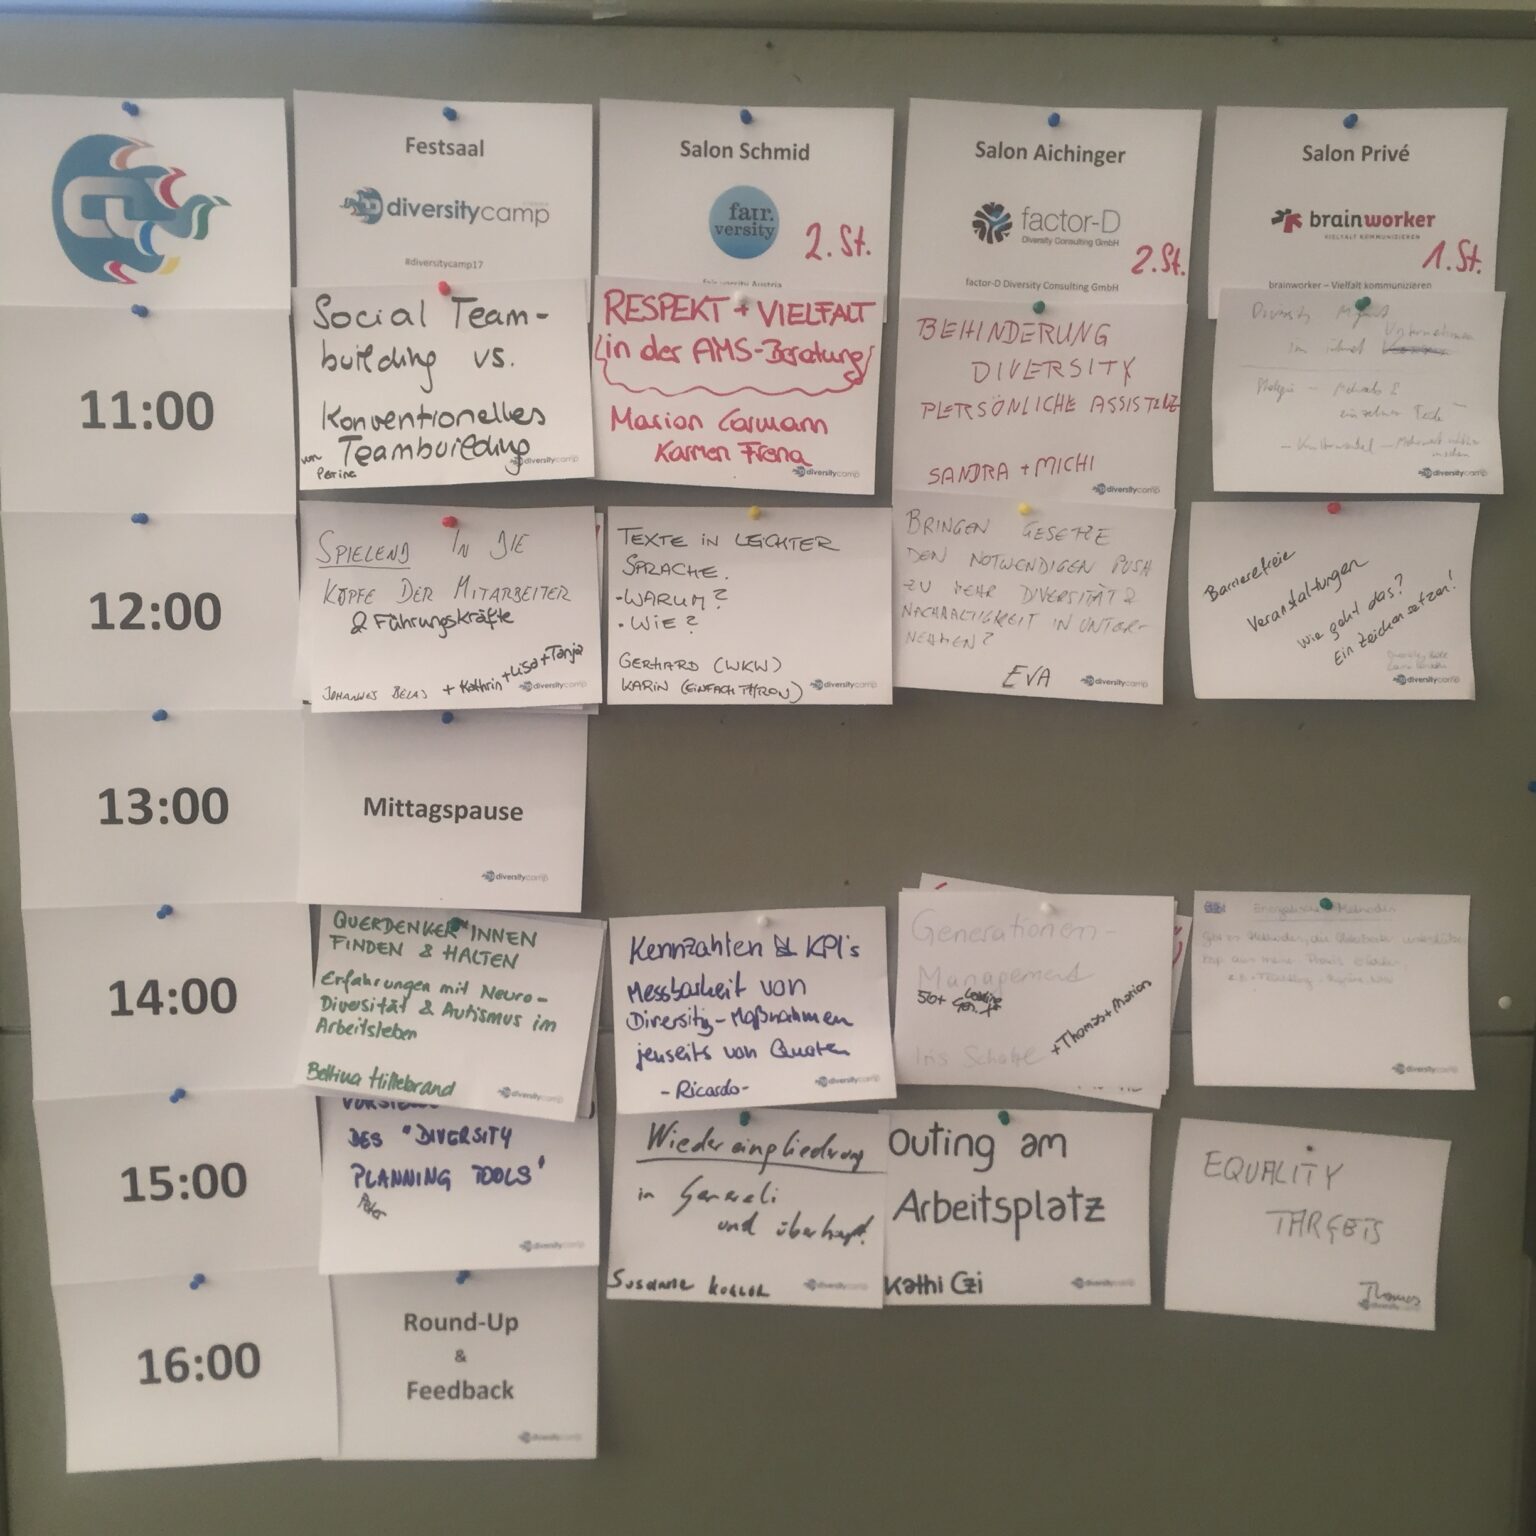 Festsaal
diversitycamp
#diversitycamp17
Salon Schmid
fair.
versity
2. St.
Salon Aichinger
factor-D
Diversity Consulting GmbH
2. St.
factor-D Diversity Consulting GmbH
Salon Privé
brainworker
VIELFALT KOMMUNIZIEREN
1. St.
brainworker – Vielfalt kommunizieren
11:00
Social Team-
building vs.
Konventionelles
Teambuilding
von
Perrine
diversitycamp
RESPEKT + VIELFALT
in der AMS-Beratung
Marion Carmann
Karmen Frena
diversitycamp
BEHINDERUNG
DIVERSITY
PERSÖNLICHE ASSISTENZ
SANDRA + MICHI
diversitycamp
Diversity
Unternehmen
diversitycamp
12:00
SPIELEND IN DIE
KÖPFE DER MITARBEITER
& Führungskräfte
JOHANNES + Kathrin + Lisa + Tanja
diversitycamp
TEXTE IN LEICHTER
SPRACHE.
• WARUM?
• WIE?
GERHARD (WKW)
KARIN
diversitycamp
BRINGEN GESETZE
DEN NOTWENDIGEN PUSH
ZU MEHR DIVERSITÄT &
NACHHALTIGKEIT IN UNTER-
NEHMEN?
EVA
diversitycamp
Barrierefreie
Veranstaltungen
Wie geht das?
Ein Zeichen setzen!
diversitycamp
13:00
Mittagspause
diversitycamp
14:00
QUERDENKER*INNEN
FINDEN & HALTEN
Erfahrungen mit Neuro-
Diversität & Autismus im
Arbeitsleben
Bettina Hillebrand
diversitycamp
Kennzahlen & KPI's
Messbarkeit von
Diversity-Maßnahmen
jenseits von Quoten
- Ricardo -
diversitycamp
Generationen-
Management
50+
Iris
+ Thomas + Marion
diversitycamp
15:00
DES "DIVERSITY
PLANNING TOOLS"
Peter
diversitycamp
Wiedereingliederung
in Generali
und überhaupt.
Susanne
diversitycamp
Outing am
Arbeitsplatz
Kathi Czi
diversitycamp
EQUALITY
TARGETS
Thomas
diversitycamp
16:00
Round-Up
&
Feedback
diversitycamp